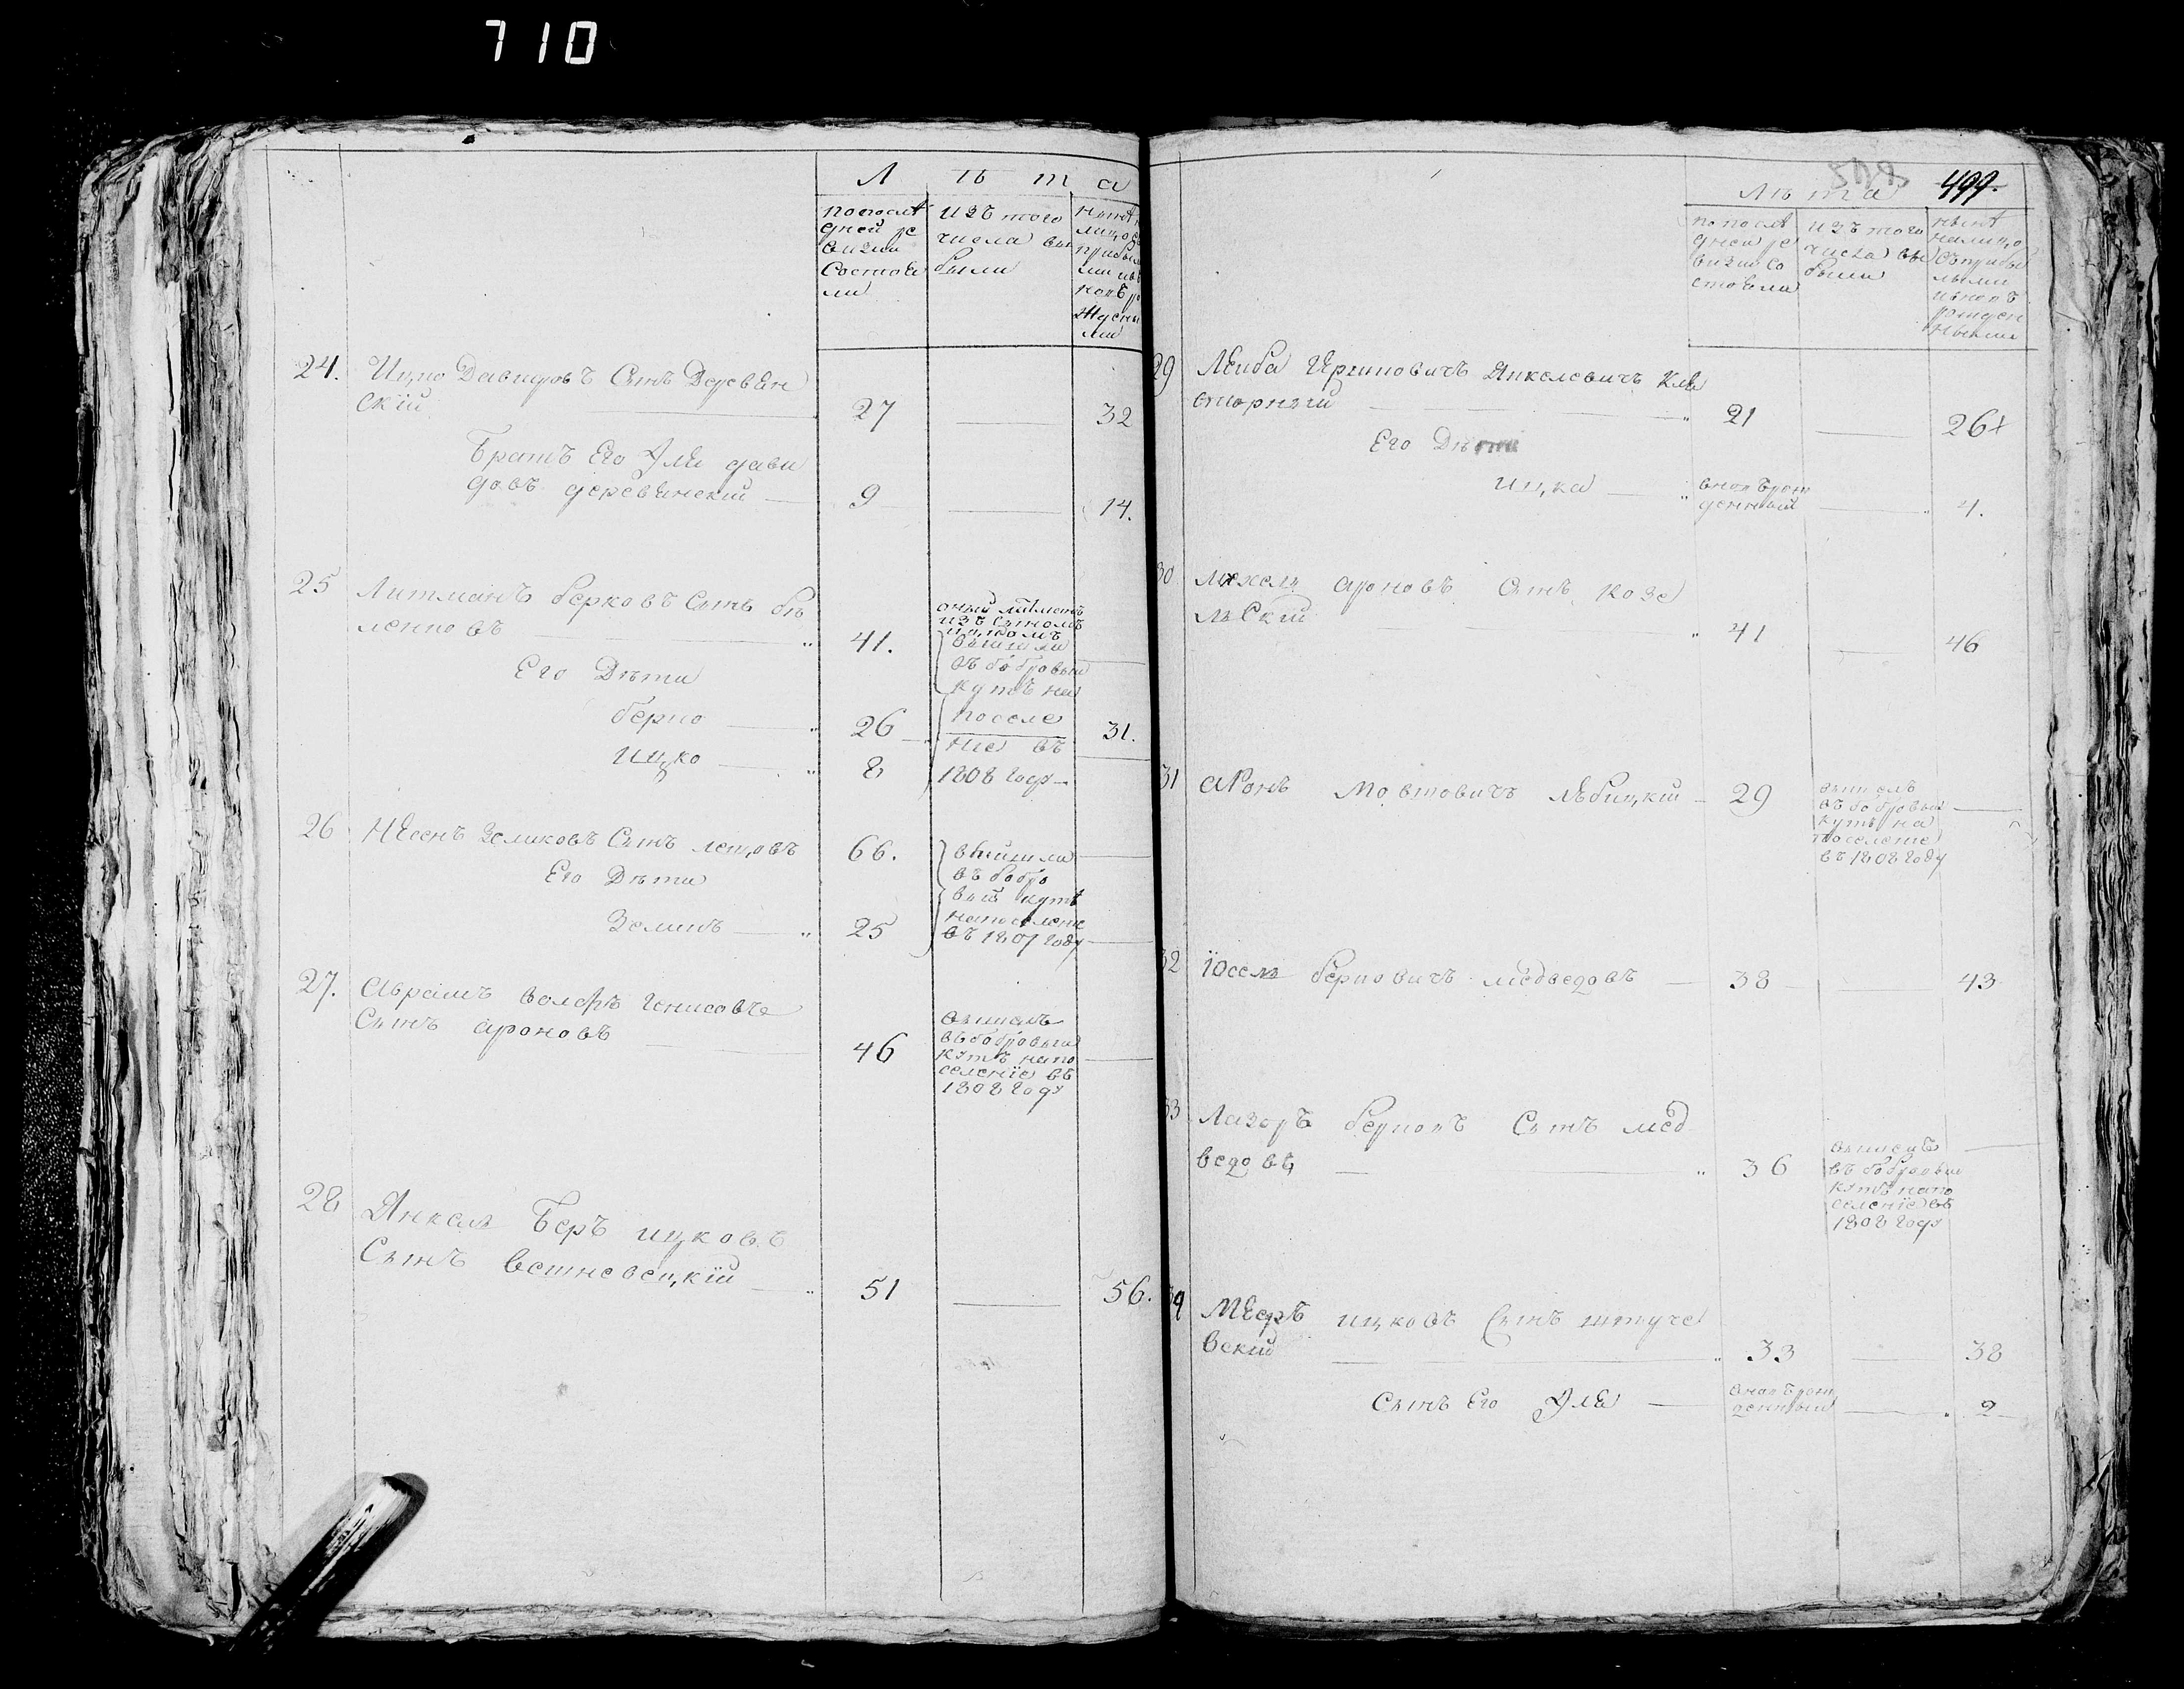 710
Л ѣ т а
попослѣ
дней ре
визии
Состоя
ли
изъ того
числа вы
были
24. Ицко Давидовъ Сынъ Деревян
скій 27 32
Братъ Его Уля дави
довъ деревянский 9 14.
25 Литманъ берковъ Сынъ бѣ
ленковъ 41.
оный литманъ
изъ Сыномъ
ицкомъ
вышли
въ бобровый
кутъ на
поселе
ние въ
1808 году
Его Дѣти
берко 26 31.
ицко 8
26 Нѣсенъ Зеликовъ Сынъ лещовъ 66.
Его Дѣти
Зеликъ 25
выйшли
въ бобро
вый кутъ
напоселение
въ 1807 году
27. Аврамъ волфъ
Сынъ ароновъ 46
вышелъ
въ бобровый
кутъ напо
селеніе въ
1808 году
28 Янкель Беръ ицковъ
Сынъ вешневецкій 51 56.
Лѣта 499.
попослѣ
дней ре
визии со
стояли
изъ того
числа вы
были
нынѣ
налицо
съприбы
лыми
ивновъ
рожден
ными
29 Лейба Гершковичъ Янкелевичъ Кла
21 26
Его Дѣти
ицка вновърож
денный 4.
30 ароновъ Сынъ козе
льскій 41 46
31 аронъ Мовшовичъ 29
вышелъ
въ бобровый
кутъ на
поселение
въ 1808 году
32 Іосель берковичъ медведовъ 38 43
33 Лазоръ берковъ Сынъ мед
ведовъ 36
вышелъ
въ бобровый
кутъ напо
селеніе въ
1808 году
34 Мѣеръ ицковъ Сынъ штуче
вский 33 38
Сынъ Его Уля вновърож
денный 2